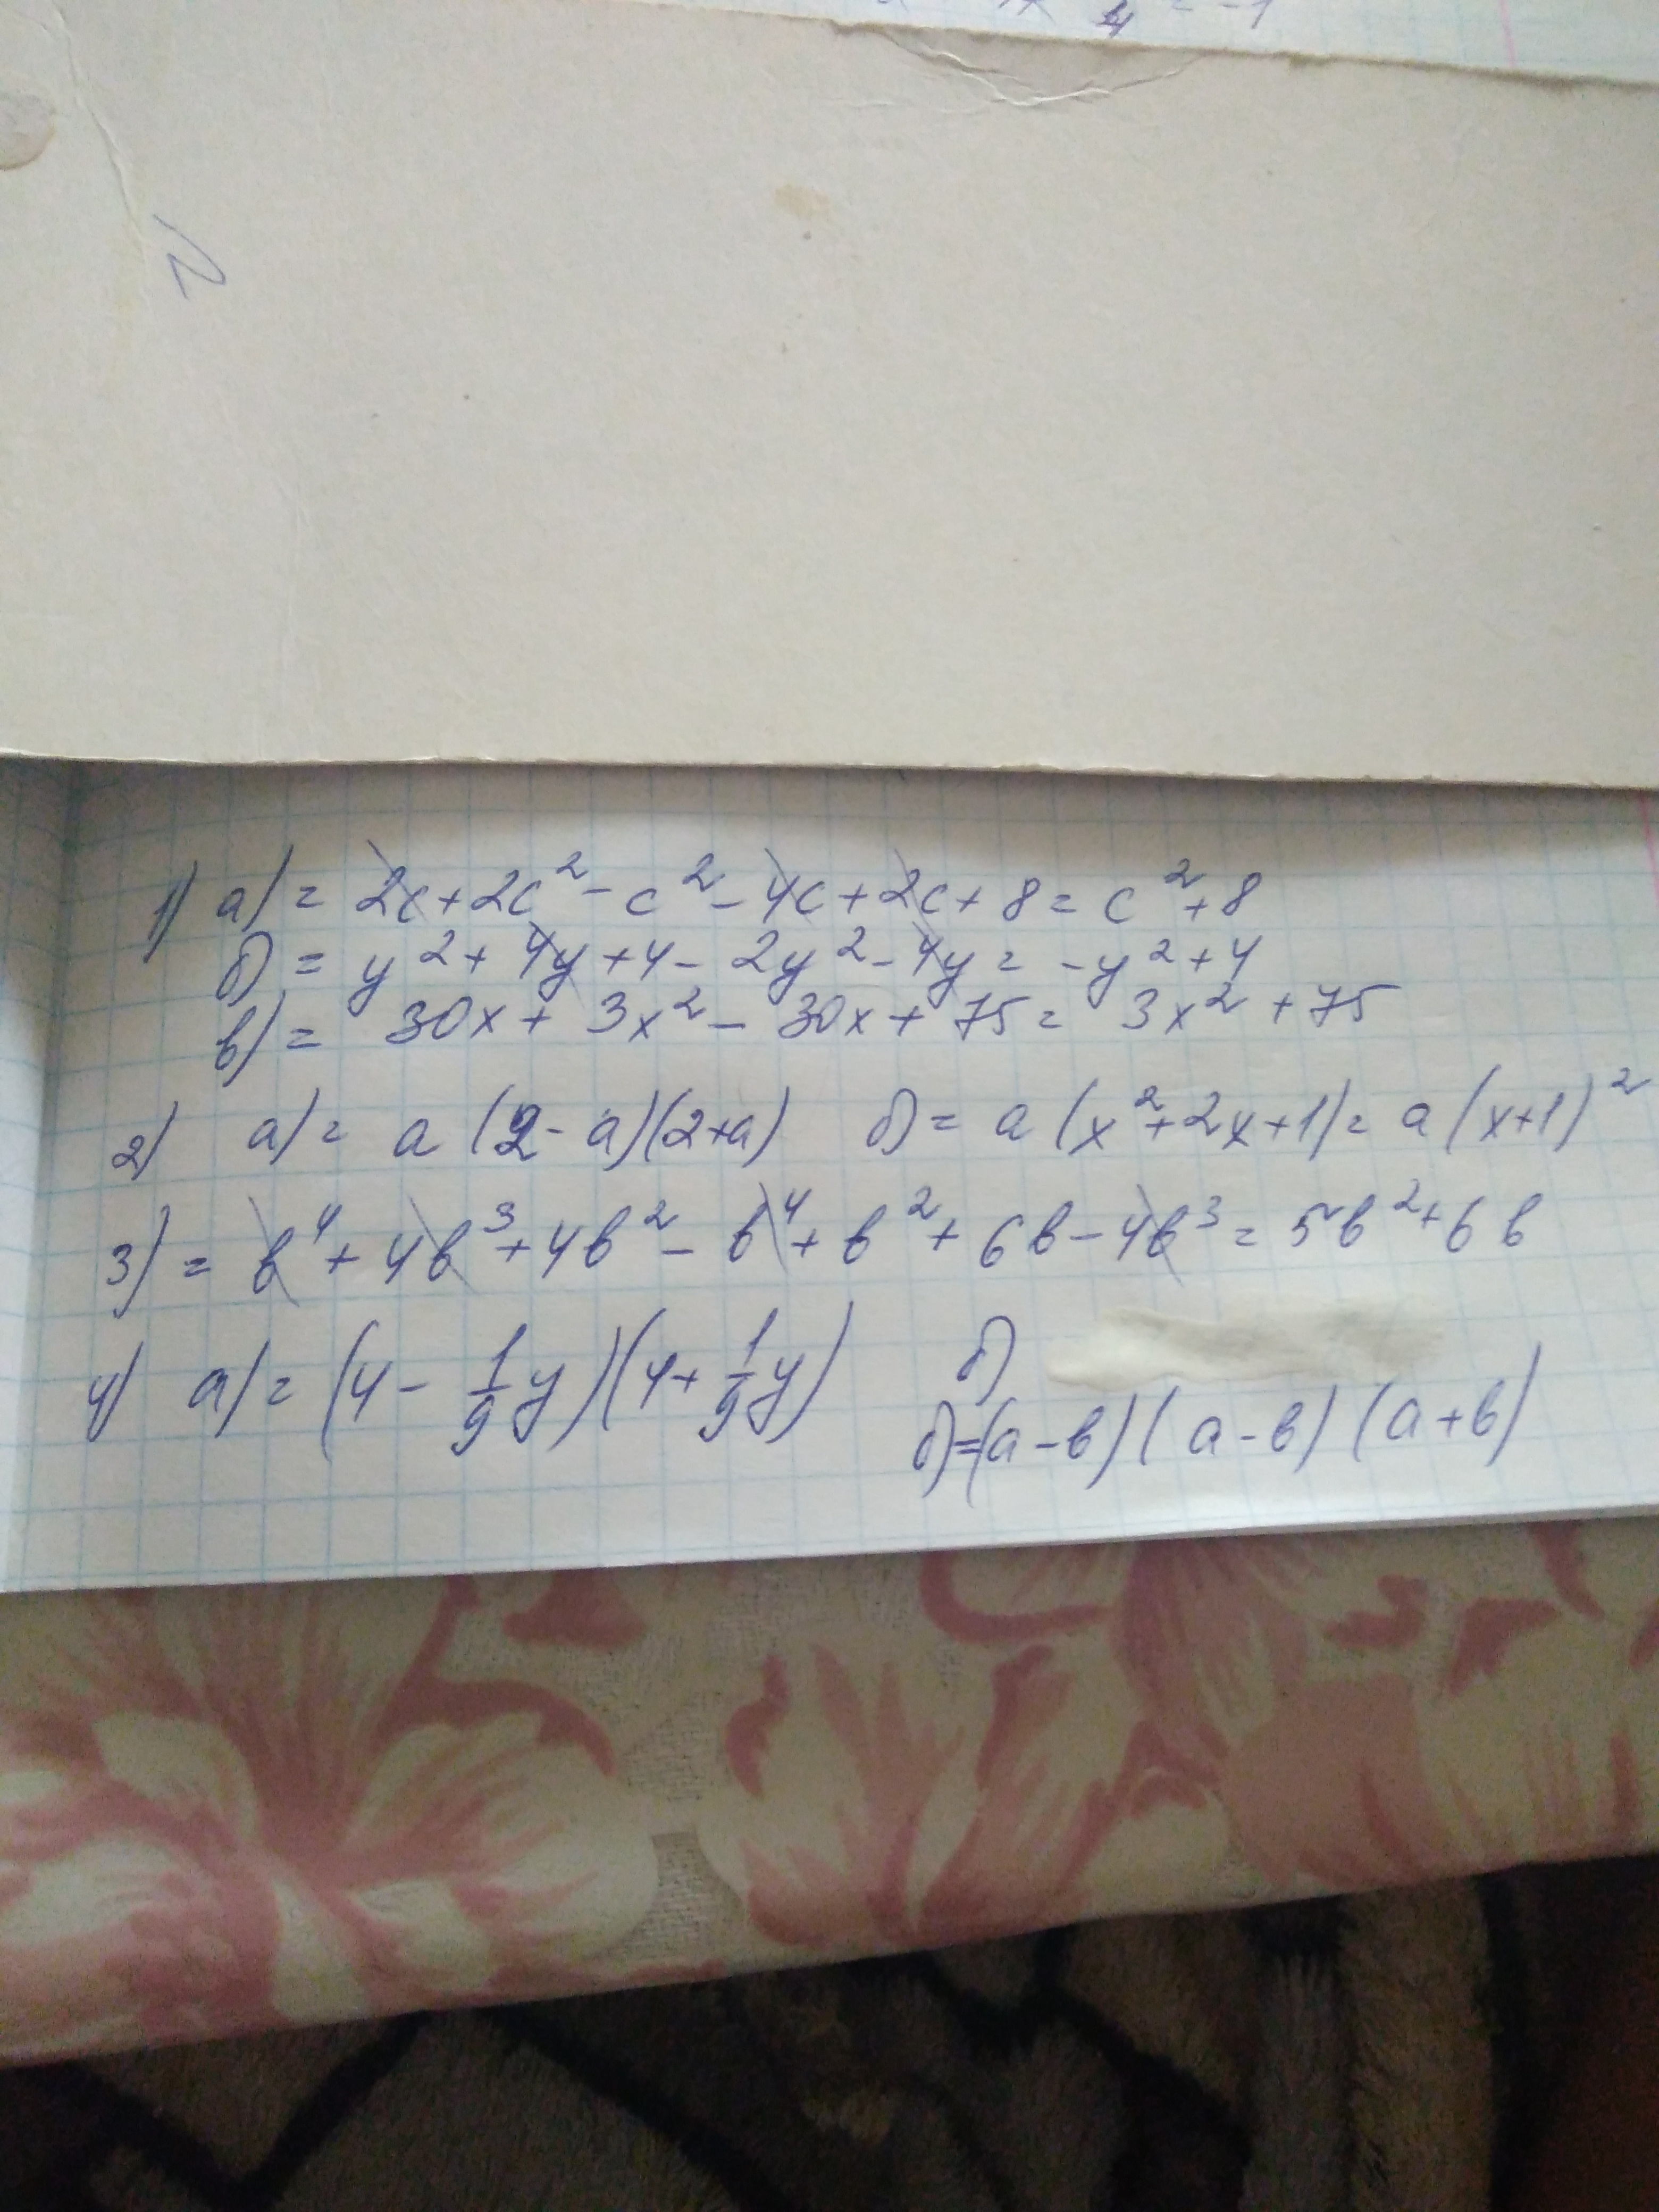 4 = -1
1) а) = 2c + 2c² - c² - 4c + 2c + 8 = c² + 8
б) = y² + 4y + 4 - 2y² - 4y = -y² + 4
в) = 30x + 3x² - 30x + 75 = 3x² + 75
2) а) = a (2 - a)(2+a) б) = a (x² + 2x + 1) = a (x+1)²
3) = b⁴ + 4b³ + 4b² - b⁴ + b² + 6b - 4b³ = 5b² + 6b
4) а) = (4 - 1/9 y)(4 + 1/9 y) б)
б) = (a - b) (a - b) (a + b)